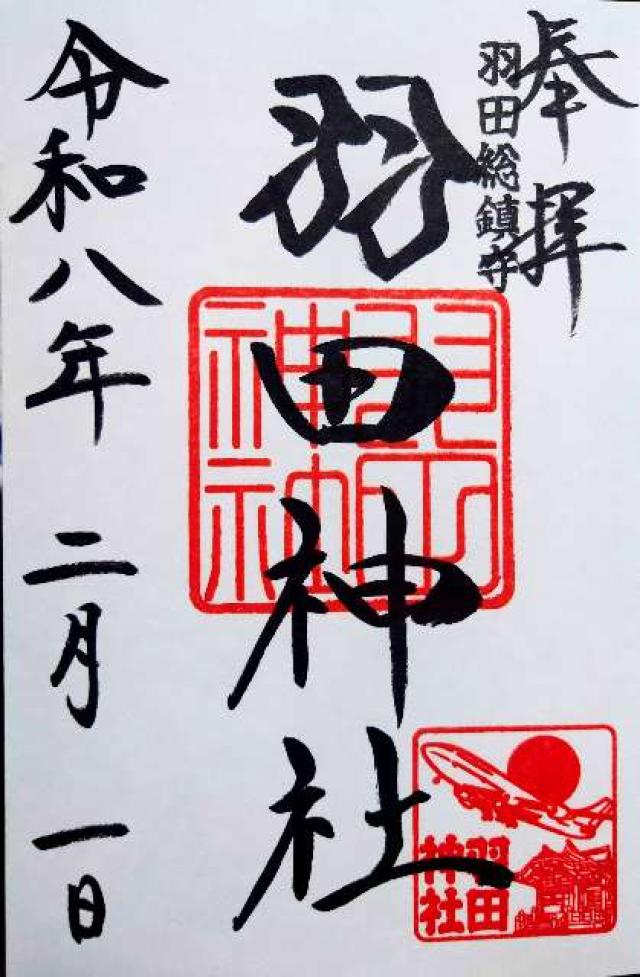 奉拝
羽田総鎮守
羽田神社
羽田
神社
令和八年 二月 一日
羽田
神社